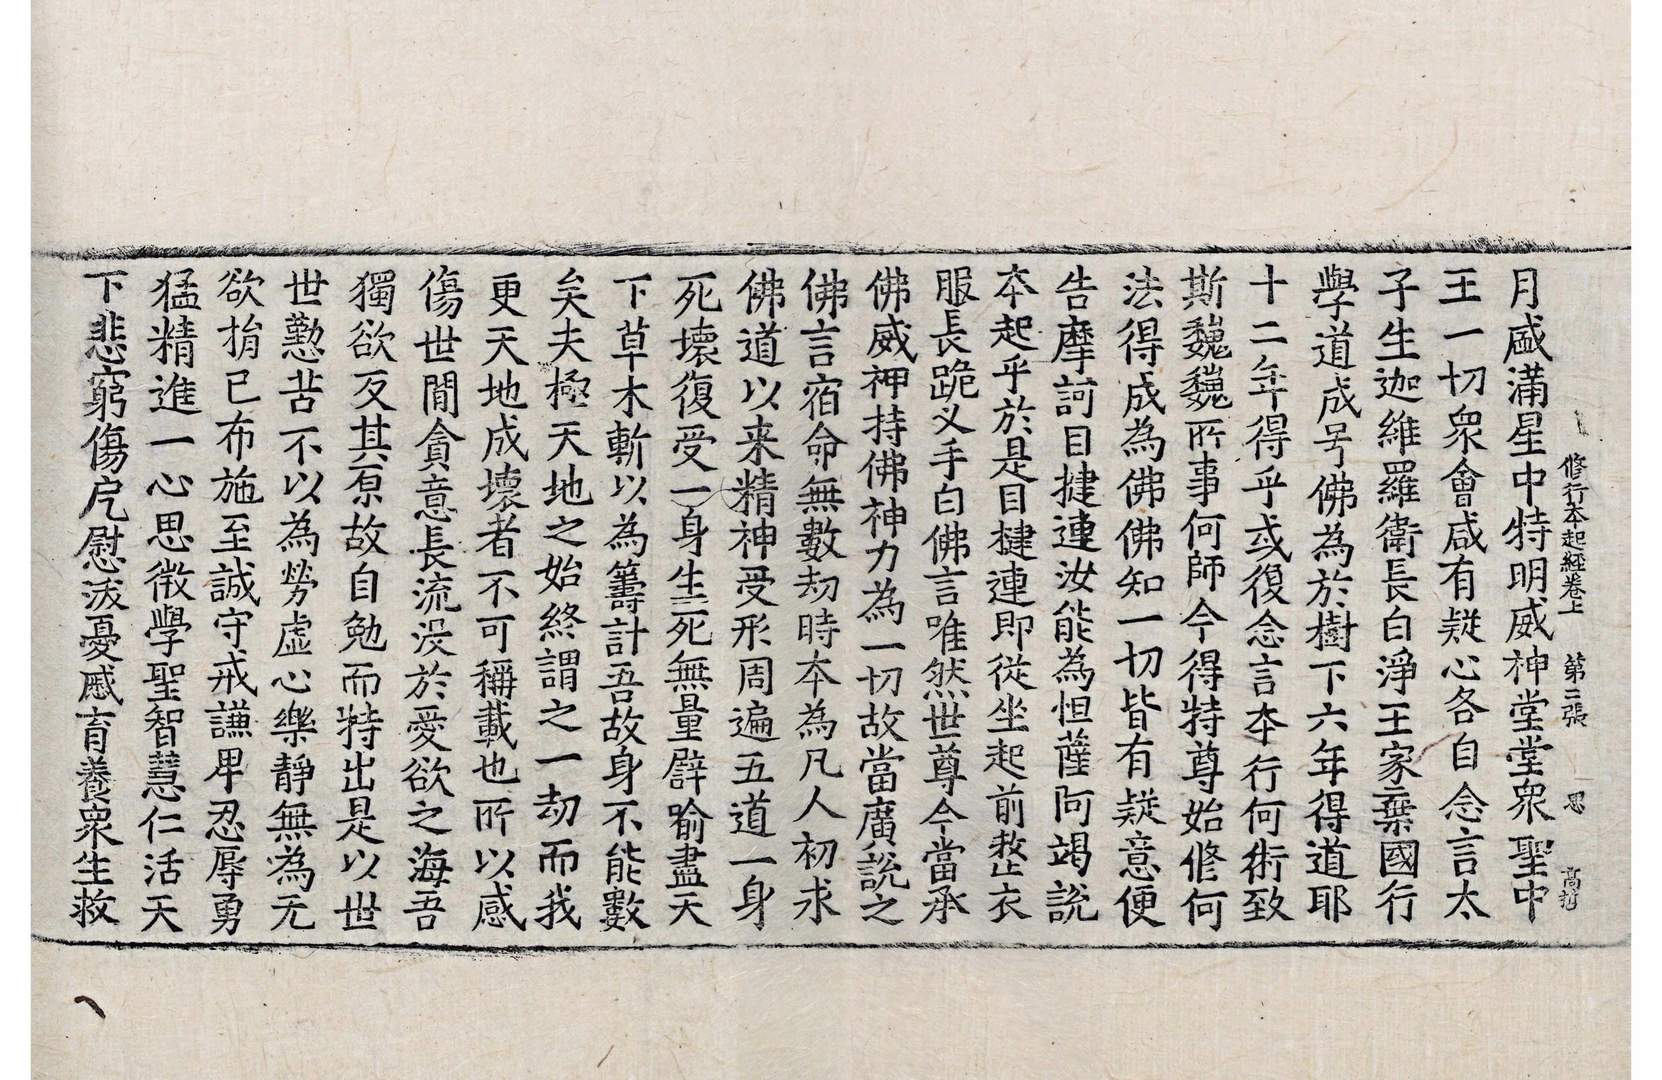 修行本起經卷上　第二張　思
月盛滿星中特明威神堂堂衆聖中
王一切衆會咸有疑心各自念言太
子生迦維羅衛長白淨王家棄國行
學道成号佛為於樹下六年得道耶
十二年得乎或復念言本行何術致
斯巍巍所事何師今得特尊始修何
法得成為佛佛知一切皆有疑意便
告摩訶目揵連汝能為怛薩阿竭說
本起乎於是目揵連即從坐起前整衣
服長跪叉手白佛言唯然世尊今當承
佛威神持佛神力為一切故當廣說之
佛言宿命無數劫時本為凡人初求
佛道以来精神受形周遍五道一身
死壞復受一身生死無量辟喻盡天
下草木斬以為籌計吾故身不能數
矣夫極天地之始終謂之一劫而我
更天地成壞者不可稱載也所以感
傷世間貪意長流沒於愛欲之海吾
獨欲反其原故自勉而特出是以世
世懃苦不以為勞虛心樂靜無為无
欲捐已布施至誠守戒謙卑忍辱勇
猛精進一心思微學聖智慧仁活天
下悲窮傷厄慰沷憂慼育養衆生救